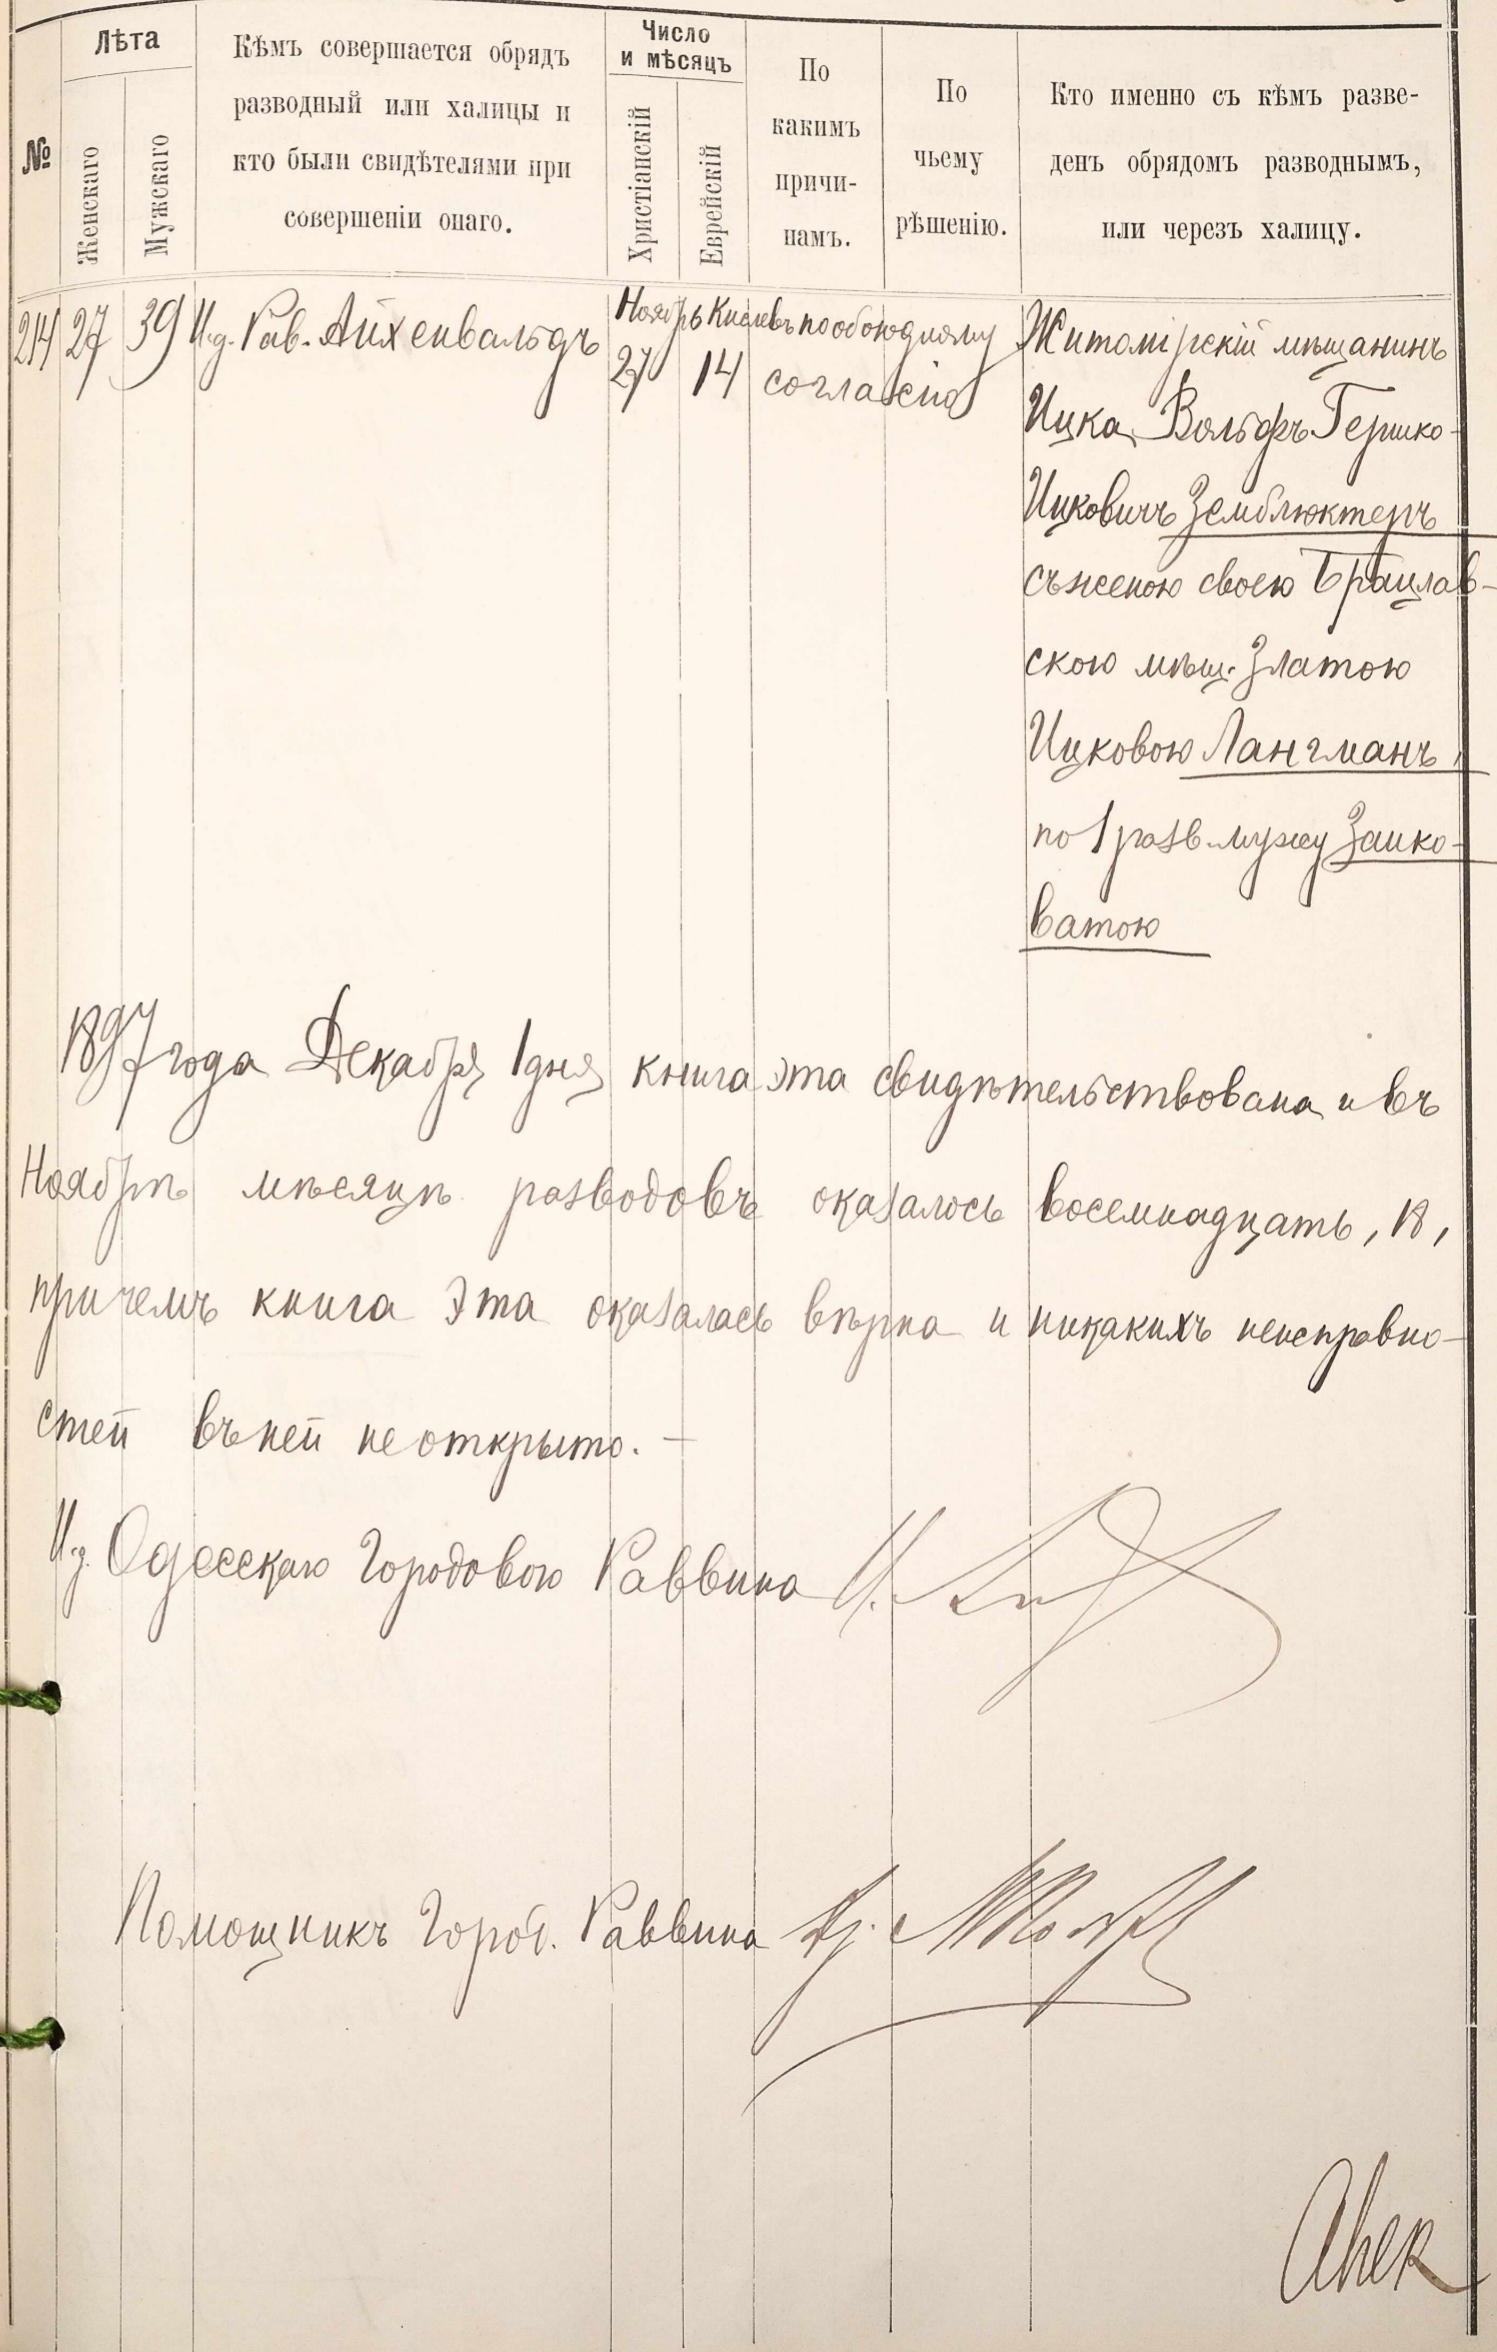 №
Лѣта
Женскаго
Мужскаго
Кѣмъ совершается обрядъ
разводный или халицы и
кто были свидѣтелями при
совершеніи онаго.
Число
и мѣсяцъ
Христіанскій
Еврейскій
По
какимъ
причи-
намъ.
По
чьему
рѣшенію.
Кто именно съ кѣмъ разве-
денъ обрядомъ разводнымъ,
или черезъ халицу.
214 27 39 И.д. Рав. Айхенвальдъ
Ноябрь Кислевъ по обоюдному
27 14 согласію
Житомірскій мѣщанинъ
Ицка Вольфъ Гершко-
Ицковичъ Земблюктеръ
съ женою своею Брацлав-
скою мѣщ. Златою
Ицковою Лангманъ,
по 1 разв. мужу Заико-
ватою
1897 года Декабря 1 дня книга эта свидѣтельствована и въ
Ноябрѣ мѣсяцѣ разводовъ оказалось восемнадцать, 18,
причемъ книга эта оказалась вѣрна и никакихъ неисправно-
стей въ ней не открыто. —
И.д. Одесскаго Городового Раввина
Помощникъ Город. Раввина